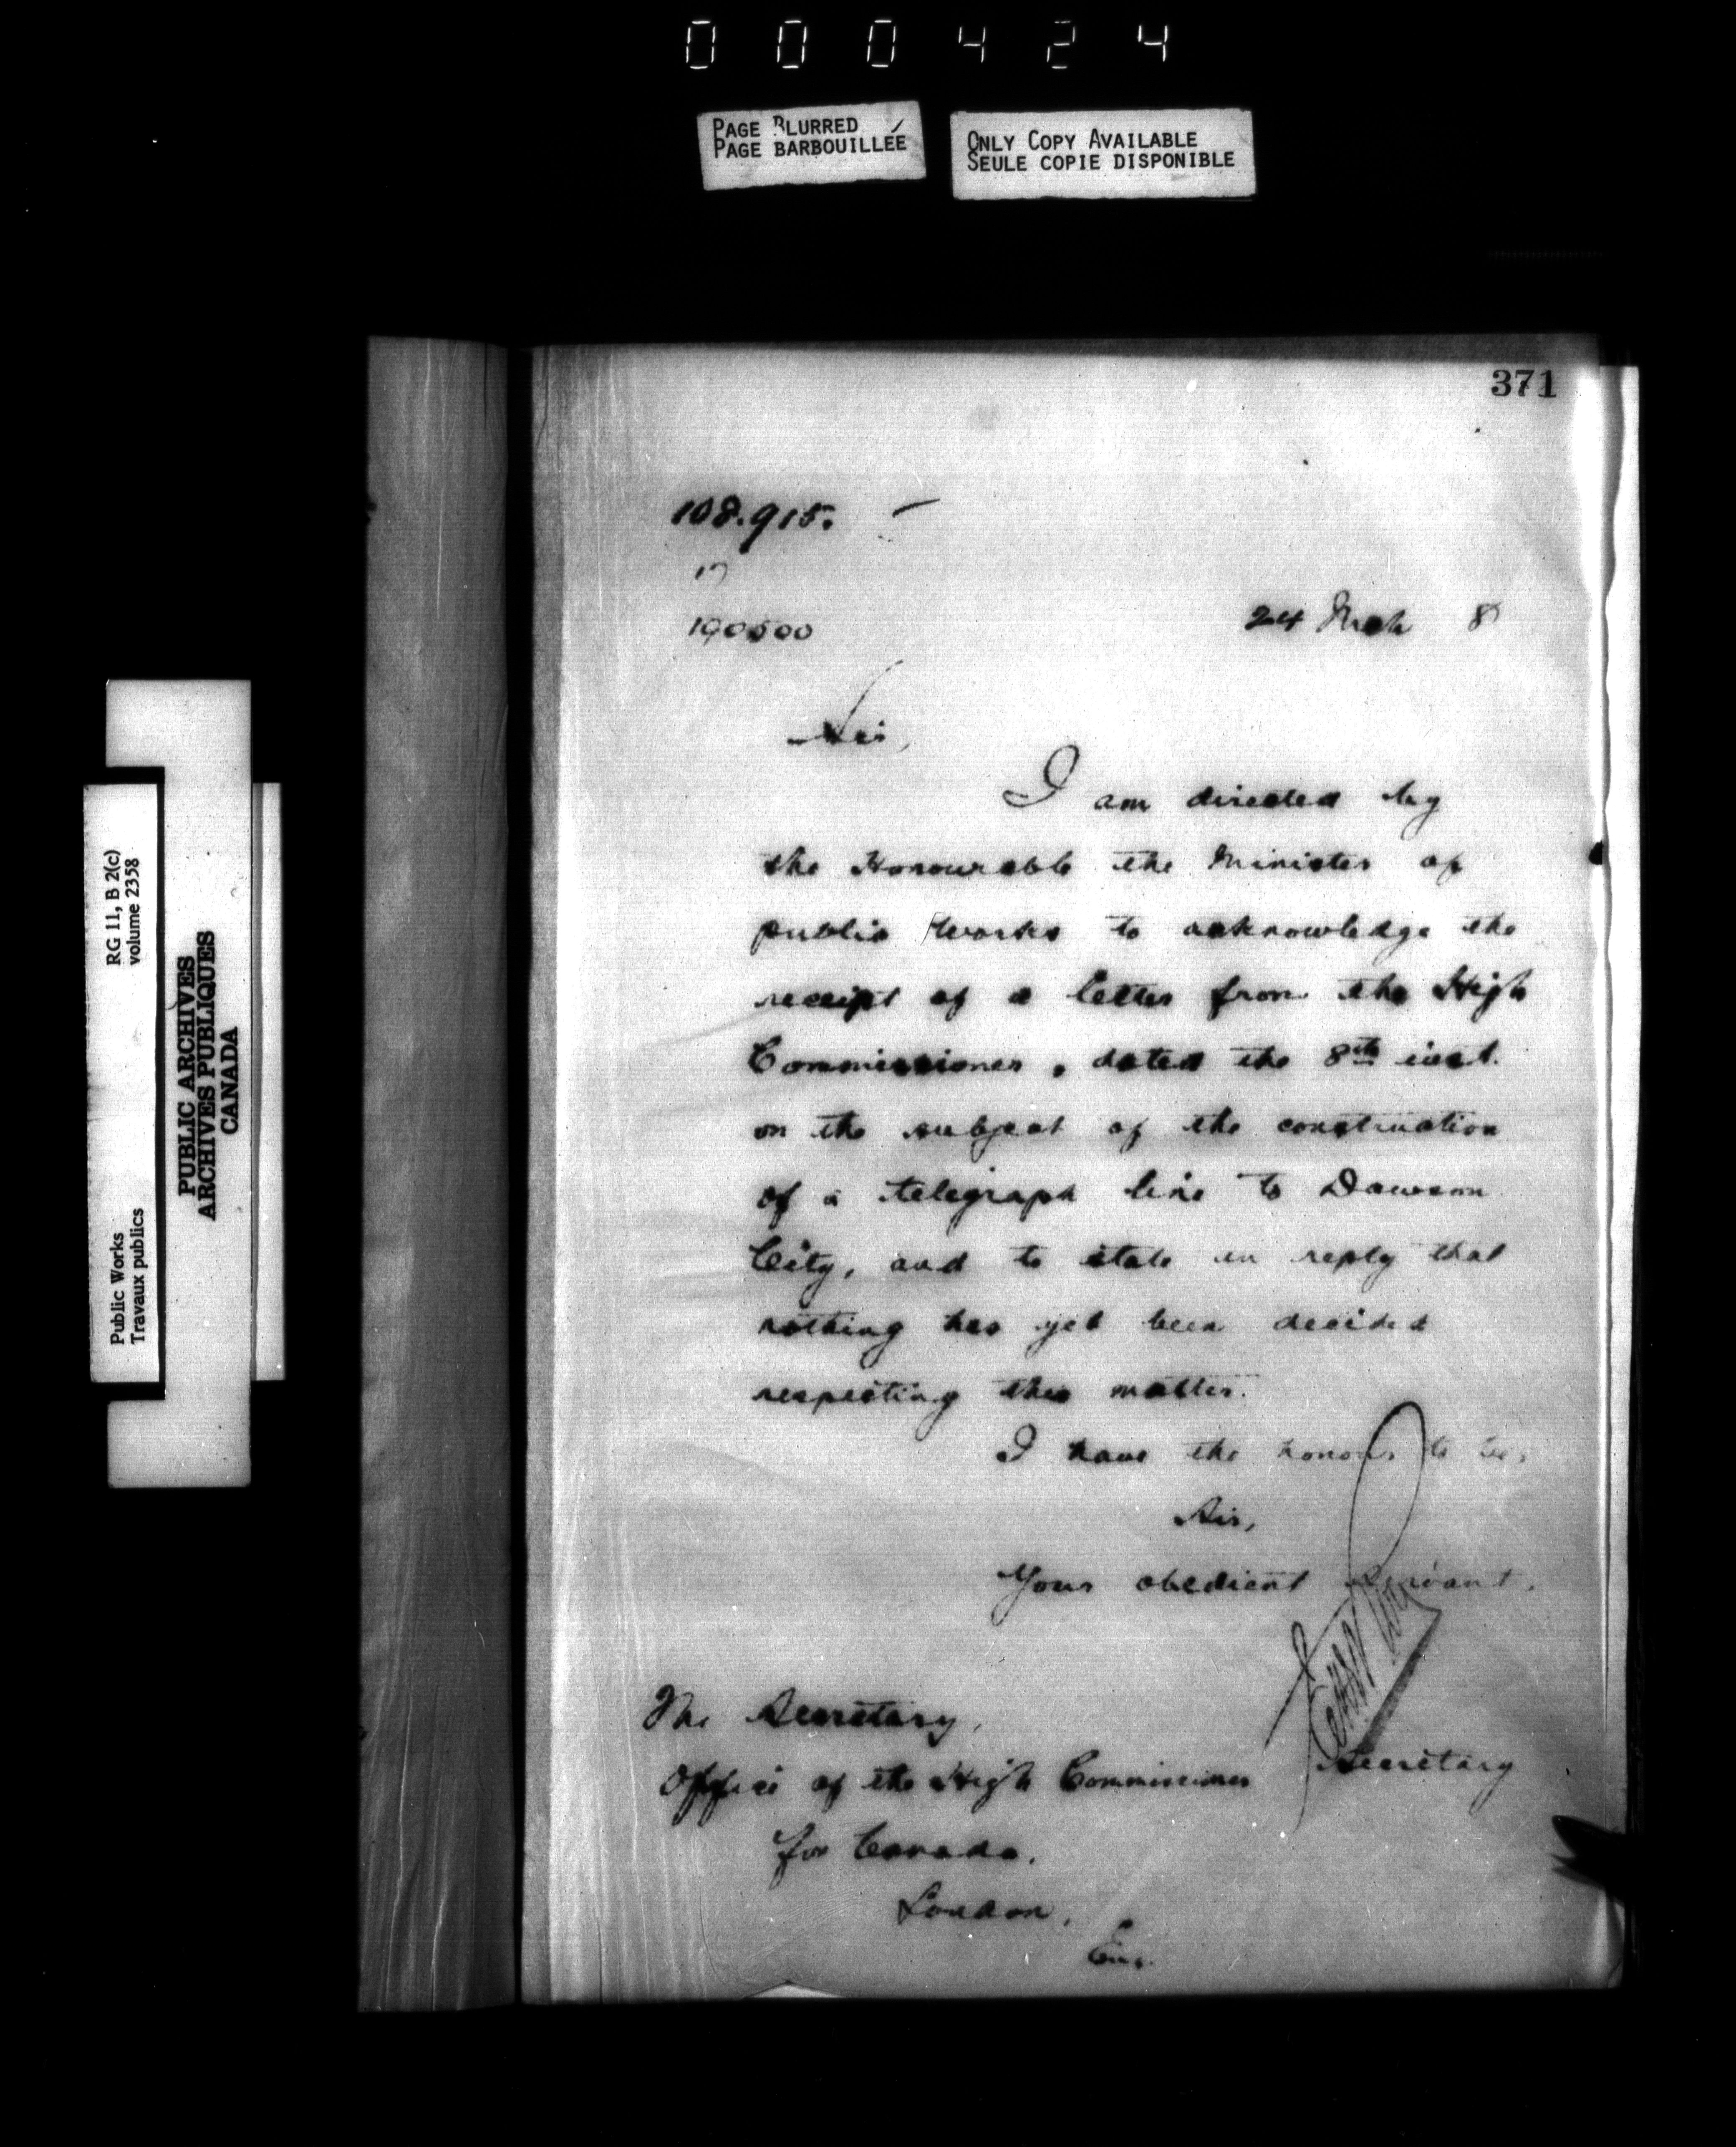 000424
PAGE BLURRED
PAGE BARBOUILLÉE
ONLY COPY AVAILABLE
SEULE COPIE DISPONIBLE
371
108.915.
17
190500
24 Mch 8
Sir,
I am directed by
the Honourable the Minister of
public Works to acknowledge the
receipt of a letter from the High
Commissioner, dated the 8th inst.
on the subject of the construction
of a telegraph line to Dawson
City, and to state in reply that
nothing has yet been decided
respecting this matter.
I have the honour to be,
Sir,
Your obedient servant,
Secretary
The Secretary,
Office of the High Commissioner
for Canada.
London,
Eng.
RG 11, B 2(c)
volume 2358
Public Works
Travaux publics
PUBLIC ARCHIVES
ARCHIVES PUBLIQUES
CANADA